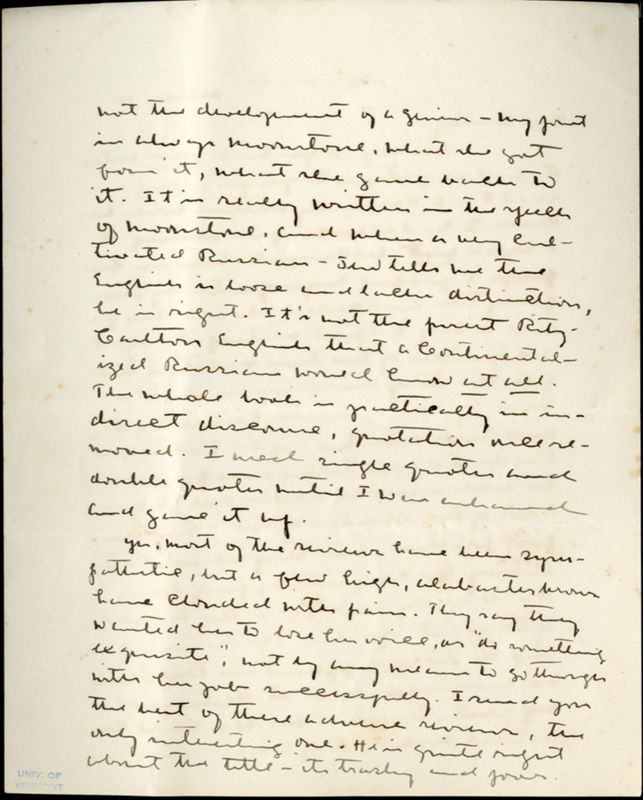 not the development of a genius - my point
is always Moonstone, what she got
from it, what she gave back to
it. It is really written in the speech
of Moonstone, and when a very cul-
tivated Russian-Jew tells me the
English is loose and lacks distinction,
he is right. It's not the purest Ritz-
Carlton English that a Continental-
ized Russian would know at all.
The whole book is practically in in-
direct discourse, quotation once re-
moved. I used single quotes and
double quotes until I was ashamed
and gave it up.
Yes, most of the reviews have been sym-
pathetic, but a few high, alabaster brows
have clouded with pain. They say they
wanted her to lose her voice, or "do something
exquisite", not by any means to go through
with her job successfully. I send you
the best of these adverse reviews, the
only interesting one. He is quite right
about the title - its trashy and poor.
UNIV. OF
VERMONT